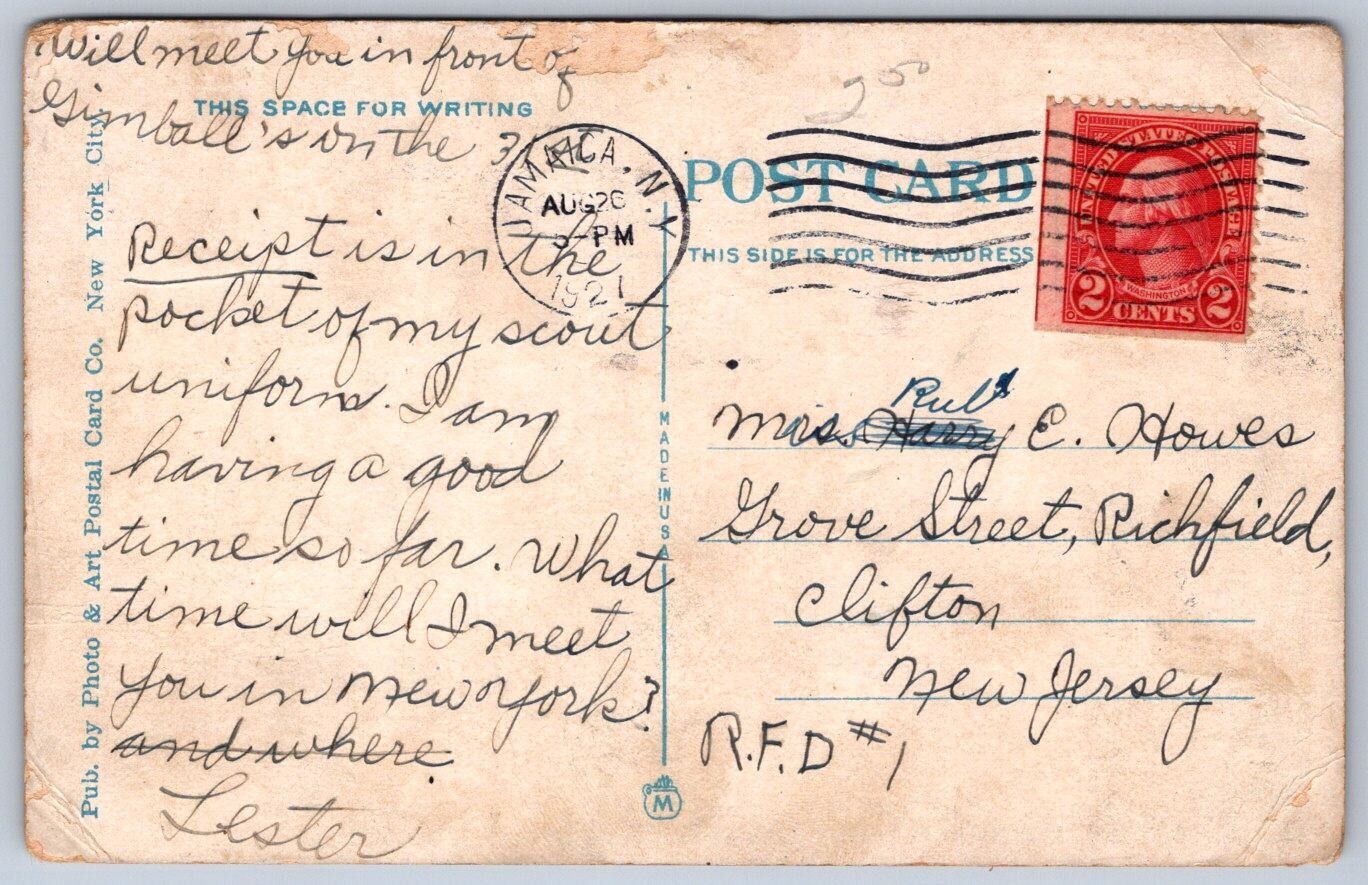 Will meet you in front of
Gimball's on the 31st
THIS SPACE FOR WRITING
Receipt is in the
pocket of my scout
uniform. I am
having a good
time so far. What
time will I meet
you in New York?
and where.
Lester
Pub. by Photo & Art Postal Card Co. New York City.
MADE IN USA
M
JAMAICA, N.Y.
AUG 26
PM
POST CARD
THIS SIDE IS FOR THE ADDRESS
200
UNITED STATES POSTAGE
WASHINGTON
2 CENTS 2
Mrs. Harry E. Howes
Grove Street, Richfield,
Clifton
New Jersey
R.F.D #1